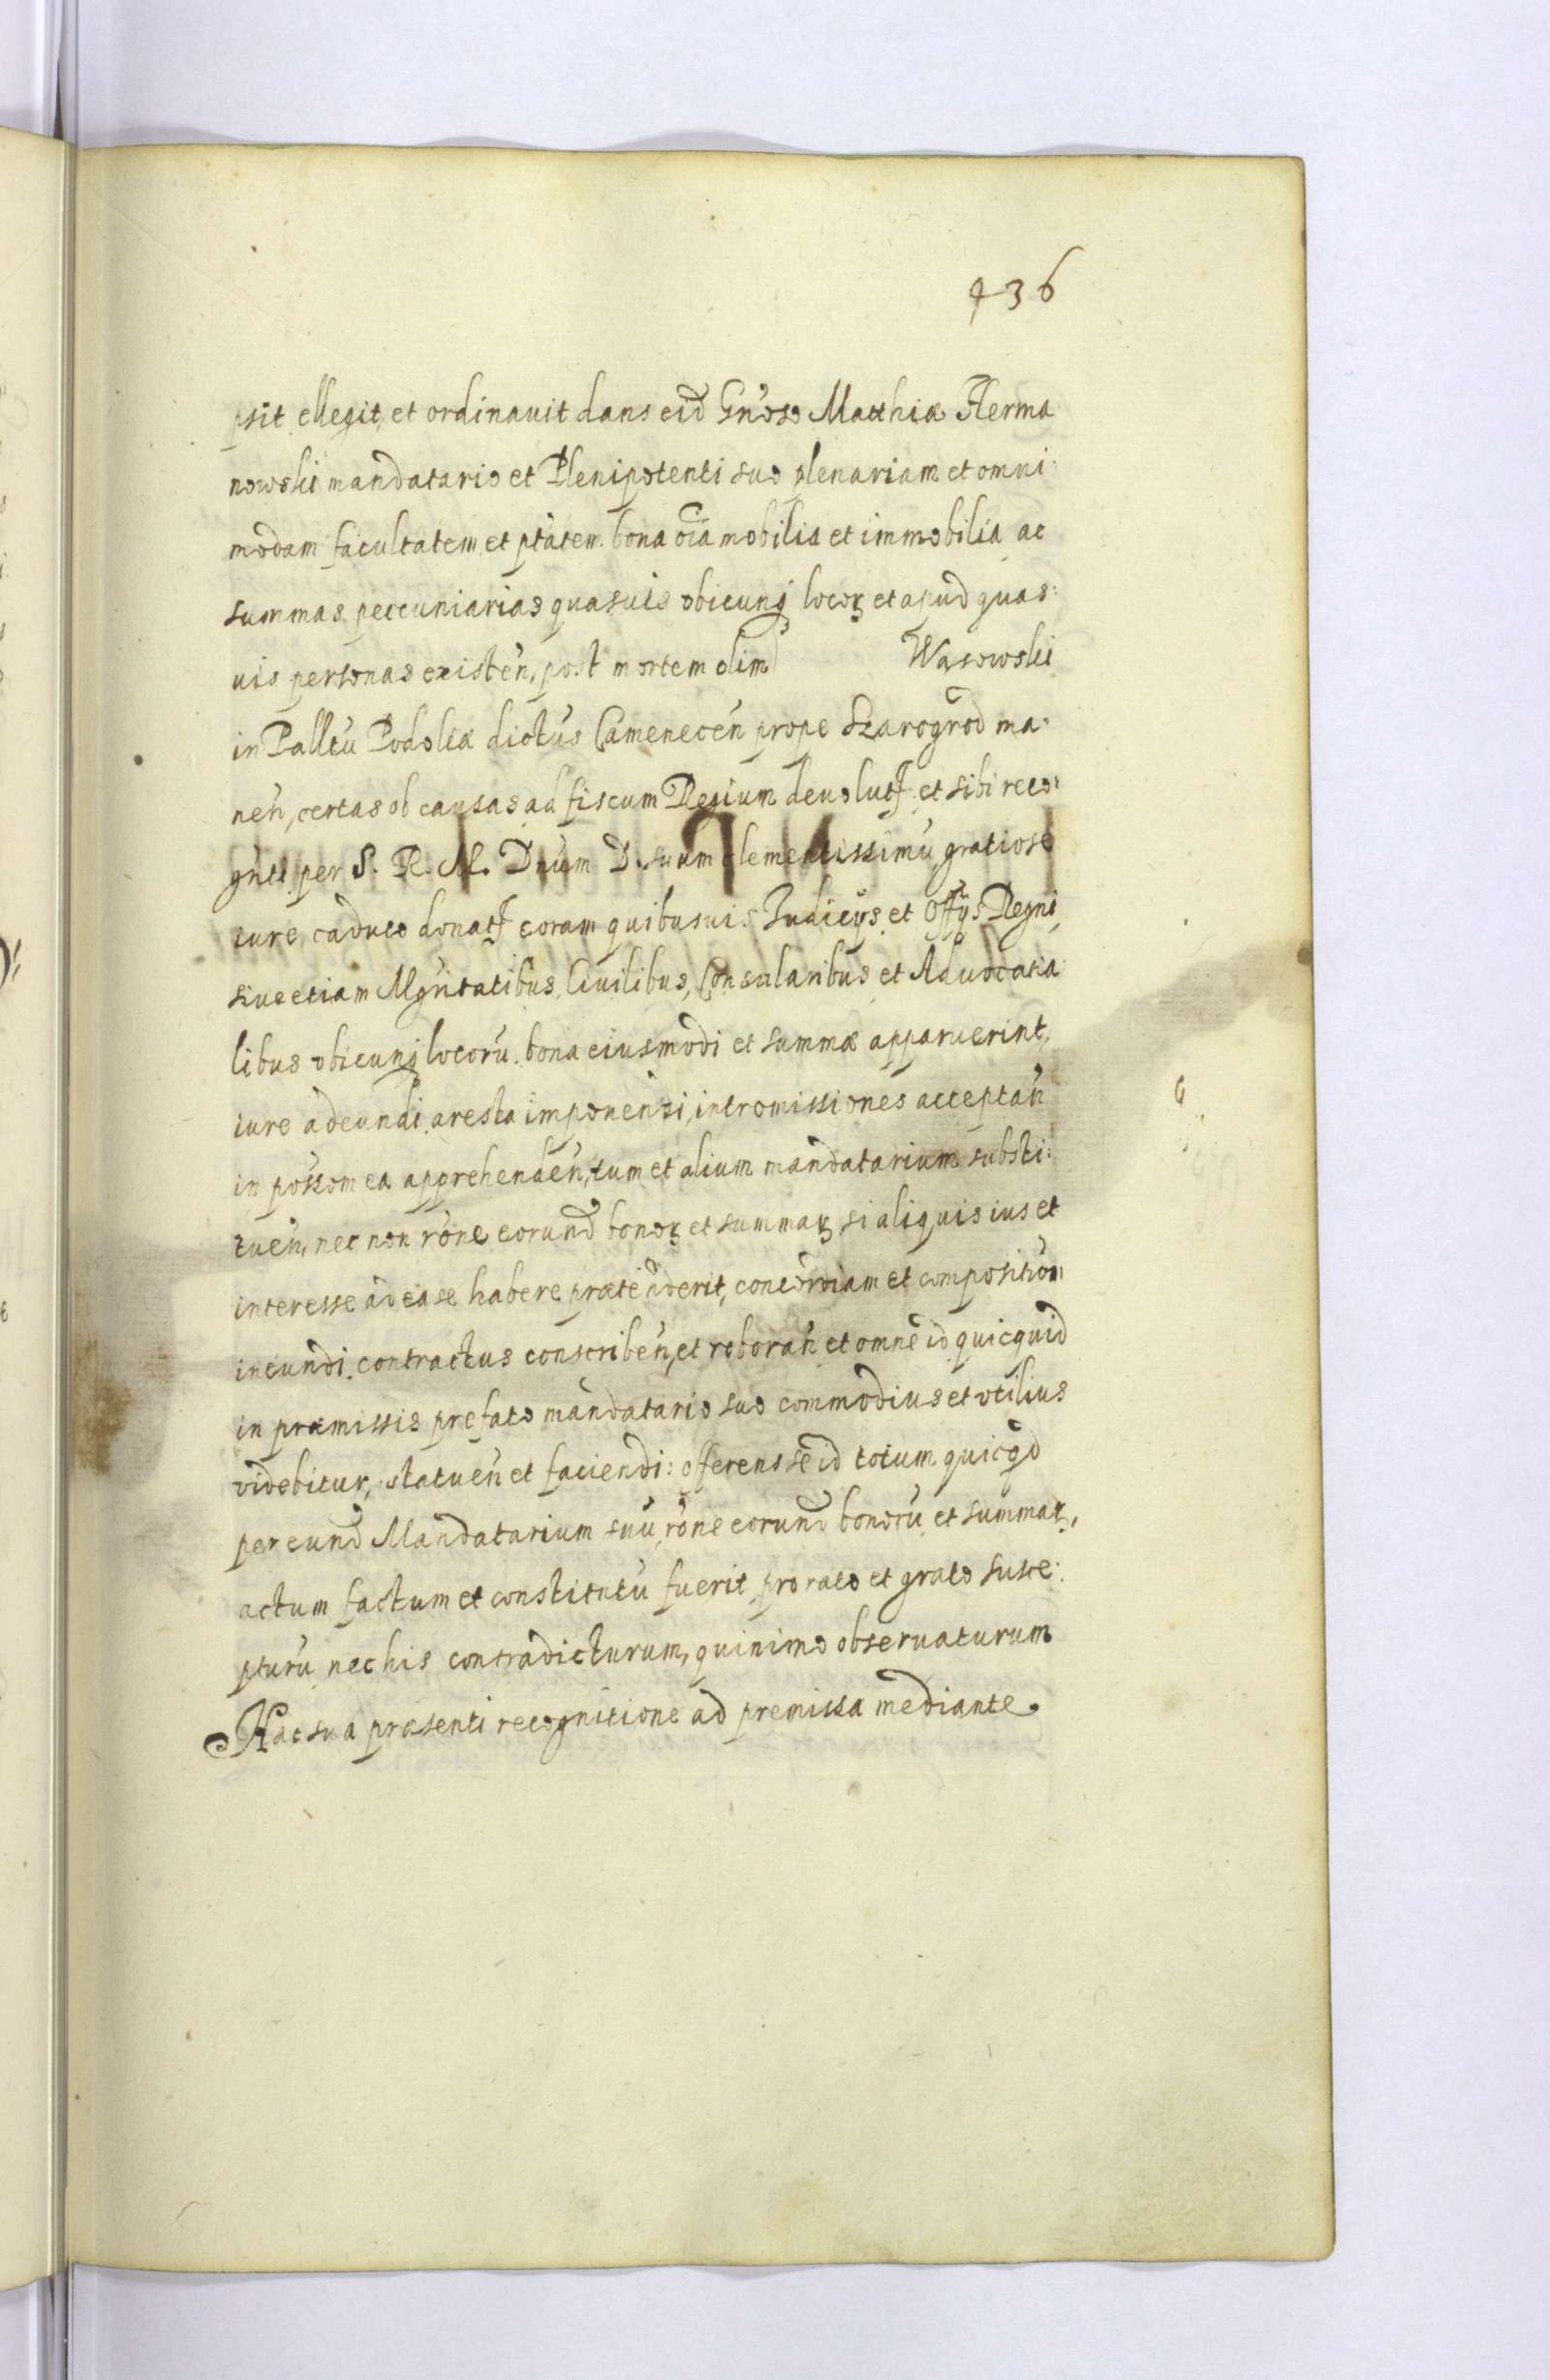 436
psit ellegit, et ordinauit dans eid Gnoso Matthiæ Herma
nowski mandatario et Plenipotenti suo plenariam et omni:
modam facultatem et ptatem. bona oia mobilia et immobilia ac
summas peccuniarias quasuis vbicunq locorz et apud quas:
uis personas existen, post mortem olim Wąsowski
in Palltu Podoliæ dictus Camenecen prope Szarogrod ma:
nen, certas ob causas ad fiscum Regium deuolut et sibi reco:
gnti per S. R. M. Dnum D. suum clementissimu gratiose
iure caduco donat coram quibusuis Iudicys et Offys Regni,
siue etiam Mgritatibus Ciuilibus, Consularibus et Aduocatia
libus vbicunq locoru bona eiusmodi et summæ apparuerint,
iure adeundi aresta imponendi, intromissiones acceptan
in possom ea apprehenden, tum et alium mandatarium substi:
tuen, nec non rone eorund bonorz et summarz, si aliquis ius et
interesse ad ea se habere prætenderit, concordiam et composition
ineundi contractus conscriben, et roboran et omne id quicquid
in præmissis prefato mandatario suo commodius et vtilius
videbitur, statuen et faciendi: offerens se id totum quicqd
per eund Mandatarium suu, rone eorund bonoru et summarz,
actum factum et constitutu fuerit pro rato et grato susce:
pturu nec his contradicturum, quinimo obseruaturum
Hac sua præsenti recognitione ad premissa mediante.